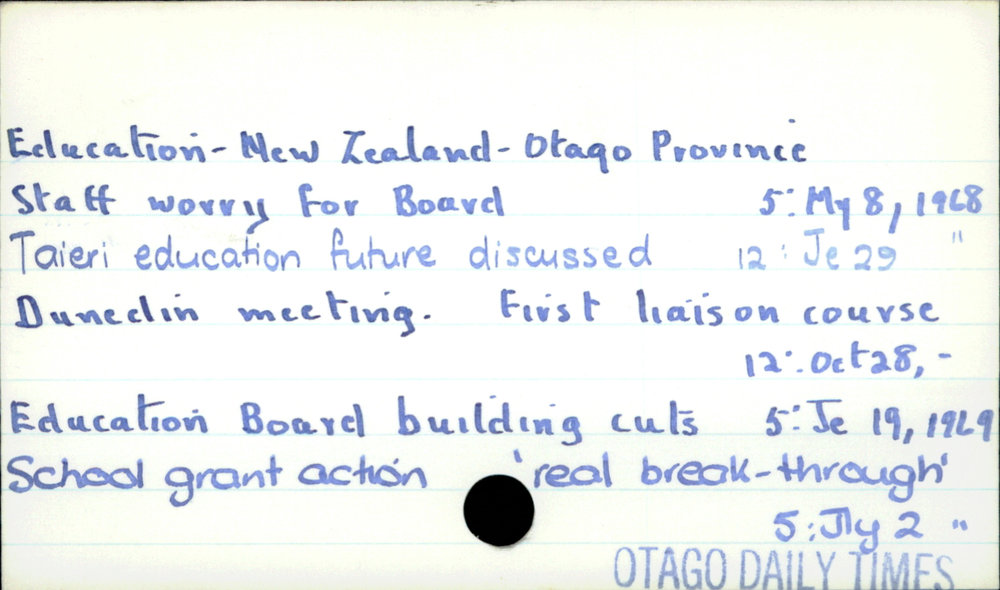 Education - New Zealand - Otago Province
Staff worry for Board 5: My 8, 1968
Taieri education future discussed 12: Je 29 "
Dunedin meeting. First liaison course
12: Oct 28, -
Education Board building cuts 5: Je 19, 1969
School grant action 'real break-through'
5: Jly 2 "
OTAGO DAILY TIMES